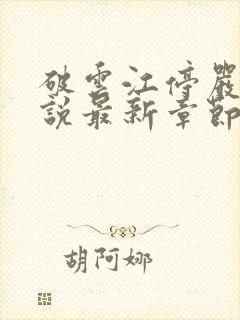 破雲江停嚴
說最新章節
胡阿娜